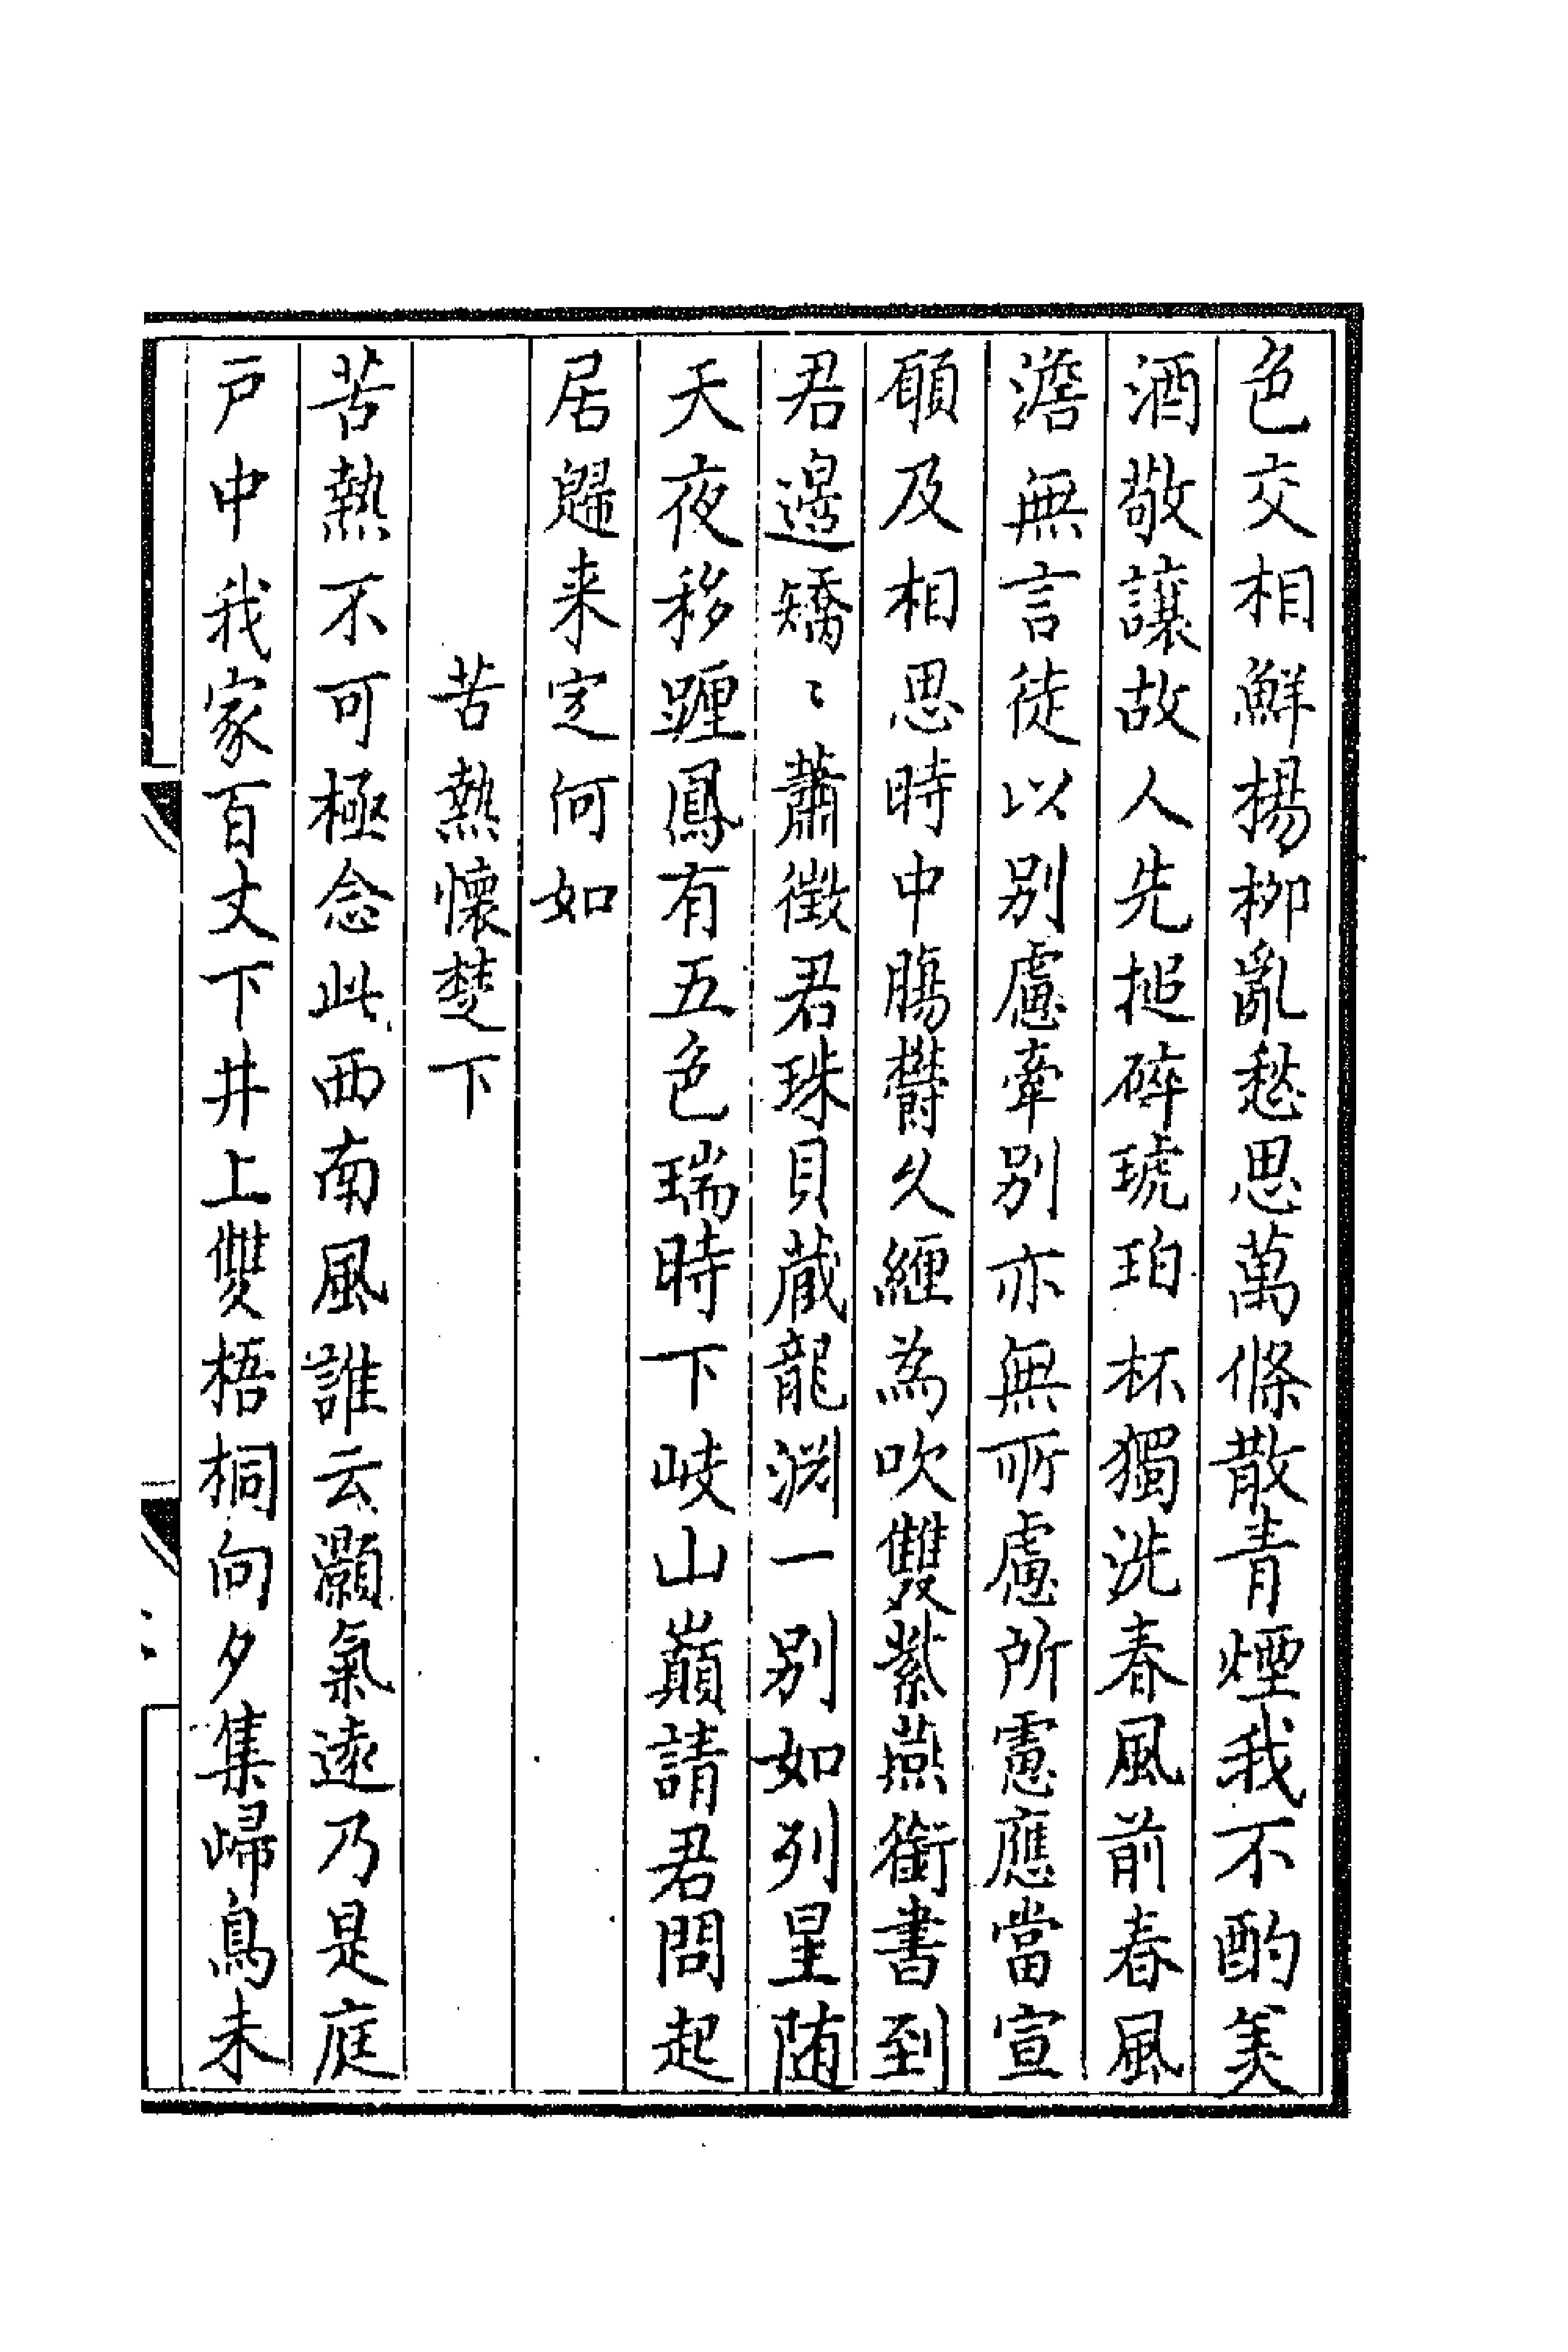 色交相鮮楊柳亂愁思萬條散青煙我不酌美
酒敬讓故人先搥碎琥珀杯獨洗春風前春風
澹無言徒以別慮牽別亦無所慮所慮應當宣
願及相思時中腸欝久纏為吹雙紫燕銜書到
君邊矯〻蕭徵君珠貝蔵龍渊一別如列星随
天夜移躔鳳有五色瑞時下岐山巔請君問起
居歸来定何如
苦熱懷楚下
苦熱不可極念此西南風誰云灝氣遠乃是庭
戸中我家百丈下井上雙梧桐向夕集歸鳥未